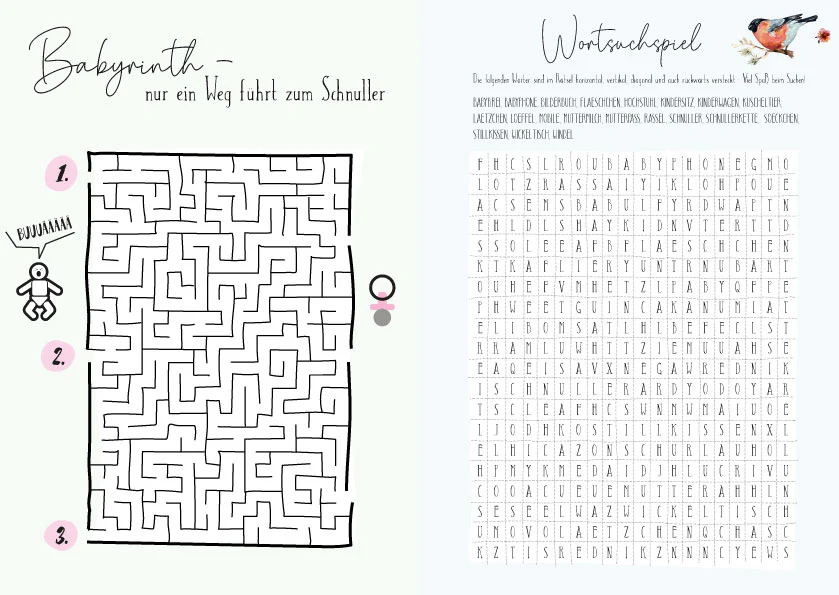 Babyrinth –
nur ein Weg führt zum Schnuller
1.
BUUUÄÄÄÄÄ
2.
3.
Wortsuchspiel
Die folgenden Wörter sind im Rätsel horizontal, vertikal, diagonal und auch rückwärts versteckt. Viel Spaß beim Suchen!
BABYBREI, BABYPHONE, BILDERBUCH, FLAESCHCHEN, HOCHSTUHL, KINDERSITZ, KINDERWAGEN, KUSCHELTIER,
LAETZCHEN, LOEFFEL, MOBILE, MUTTERMILCH, MUTTERPASS, RASSEL, SCHNULLER, SCHNULLERKETTE, SOECKCHEN,
STILLKISSEN, WICKELTISCH, WINDEL
P H C S L R O U B A B Y P H O N E G M O
L O T Z R A S S A I Y I K L O H P O U E
A C S E M S B A B U L F Y R D W A P T N
E H L D L S H A Y K I D N V T E R T T D
S S O L E E A F B F L A E S C H C H E N
K T K A F L I E R Y U N T R N U B A R T
O U H E F V M H E T Z L P A B Y Q F P E
P H W E E T G U I N C A K A N U M I A T
E L I B O M S A T L H L B E F E C L S T
R R A M L U W H T T Z I E M U U A H S E
E A Q E I S A V X N E G A W R E D N I K
I S C H N U L L E R A R D Y O D O Y A R
T S C L E A F H C S W N M W M A I U O E
L J O D H K O S T I L L K I S S E N X L
E L H I C A Z O N S C H U R L A U H O L
H P M Y K M E D A I D J H L U C R I V U
C O O A C U E U E M U T T E R A H H L N
S E S E E L W A Z W I C K E L T I S C H
U M O V O L A E T Z C H E N Q C H A S C
K Z T I S R E D N I K Z N N N C Y E W S